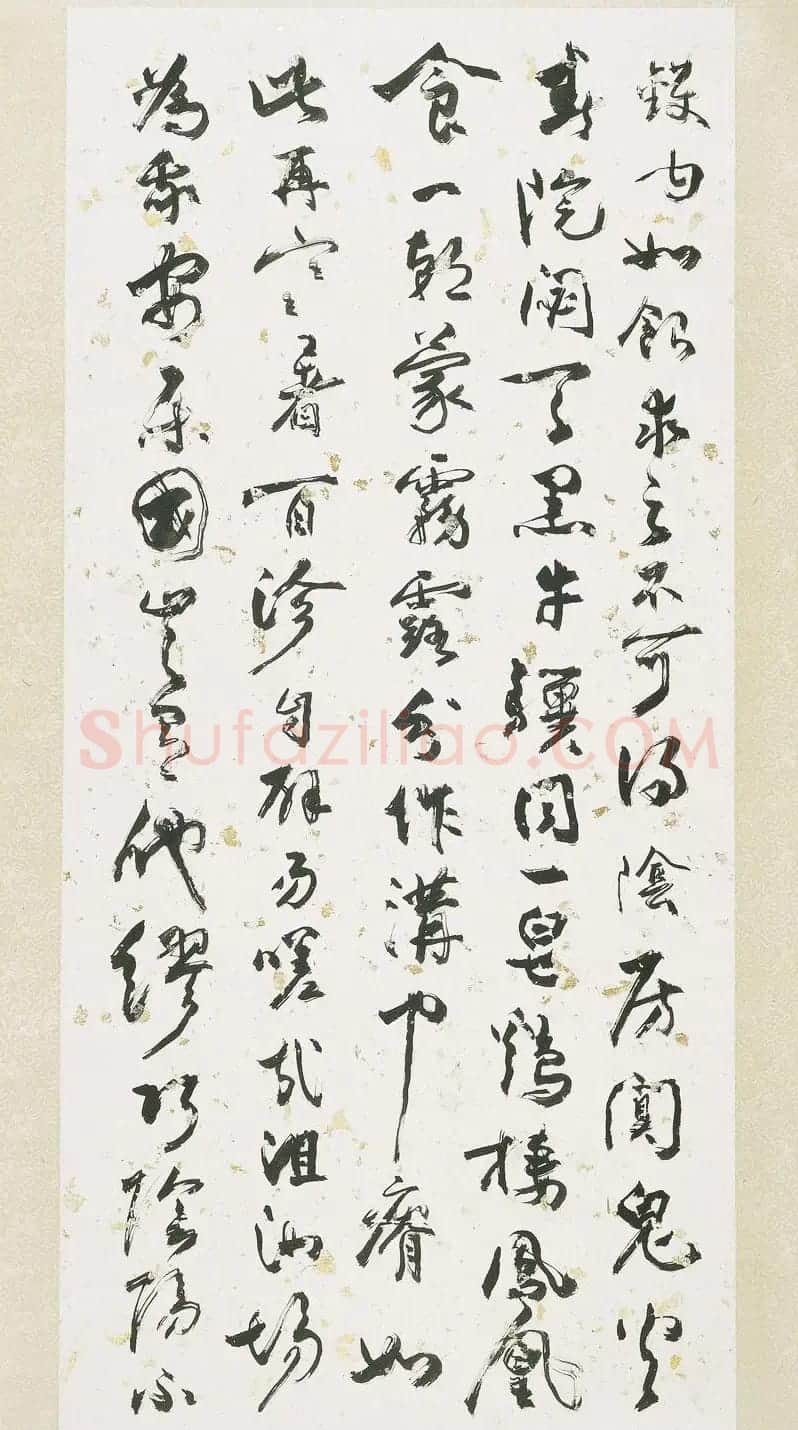 鑊甘如飴求之不可得陰房闃鬼火
春院閟天黑牛驥同一皂鷄棲鳳凰
食一朝蒙霧露分作溝中瘠如
此再寒暑百沴自辟易嗟哉沮洳場
為我安樂國豈有他繆巧陰陽不
Shufaziliao.COM